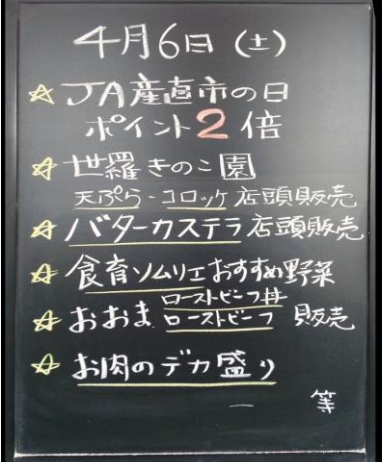 4月6日(土)
☆ JA産直市の日
ポイント2倍
☆ 世羅きのこ園
天ぷら・コロッケ 店頭販売
☆ バターカステラ 店頭販売
☆ 食育ソムリエおすすめ野菜
☆ おおま ローストビーフ丼 ローストビーフ 販売
☆ お肉のデカ盛り
等